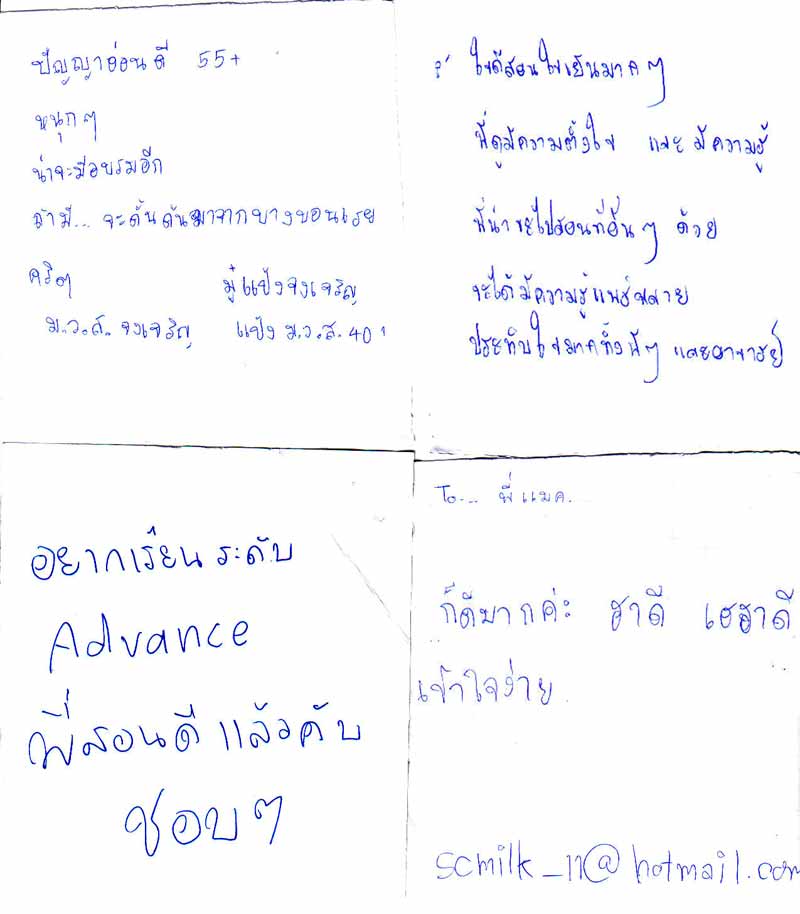 ปัญญาอ่อนดี 55+
หนุกๆ
น่าจะมีอบรมอีก
ถ้ามี... จะดั้นด้นมาจากบางบอนเรย
คริๆ
ม.ว.ส. จงเจริญ
มู๋แป้งจงเจริญ
แป้ง ม.ว.ส. 40
ใจดีสอนใจเย็นมากๆ
พี่ดูมีความตั้งใจ และ มีความรู้
พี่น่าจะไปสอนที่อื่นๆ ด้วย
จะได้มีความรู้แพร่หลาย
ประทับใจมากทั้งพี่ๆ และอาจารย์
อยากเรียนระดับ
Advance
พี่สอนดีแล้วคับ
ชอบๆ
To... พี่แมค
ก็ดีมากค่ะ ฮาดี เฮฮาดี
เข้าใจง่าย
scmilk_11@hotmail.com